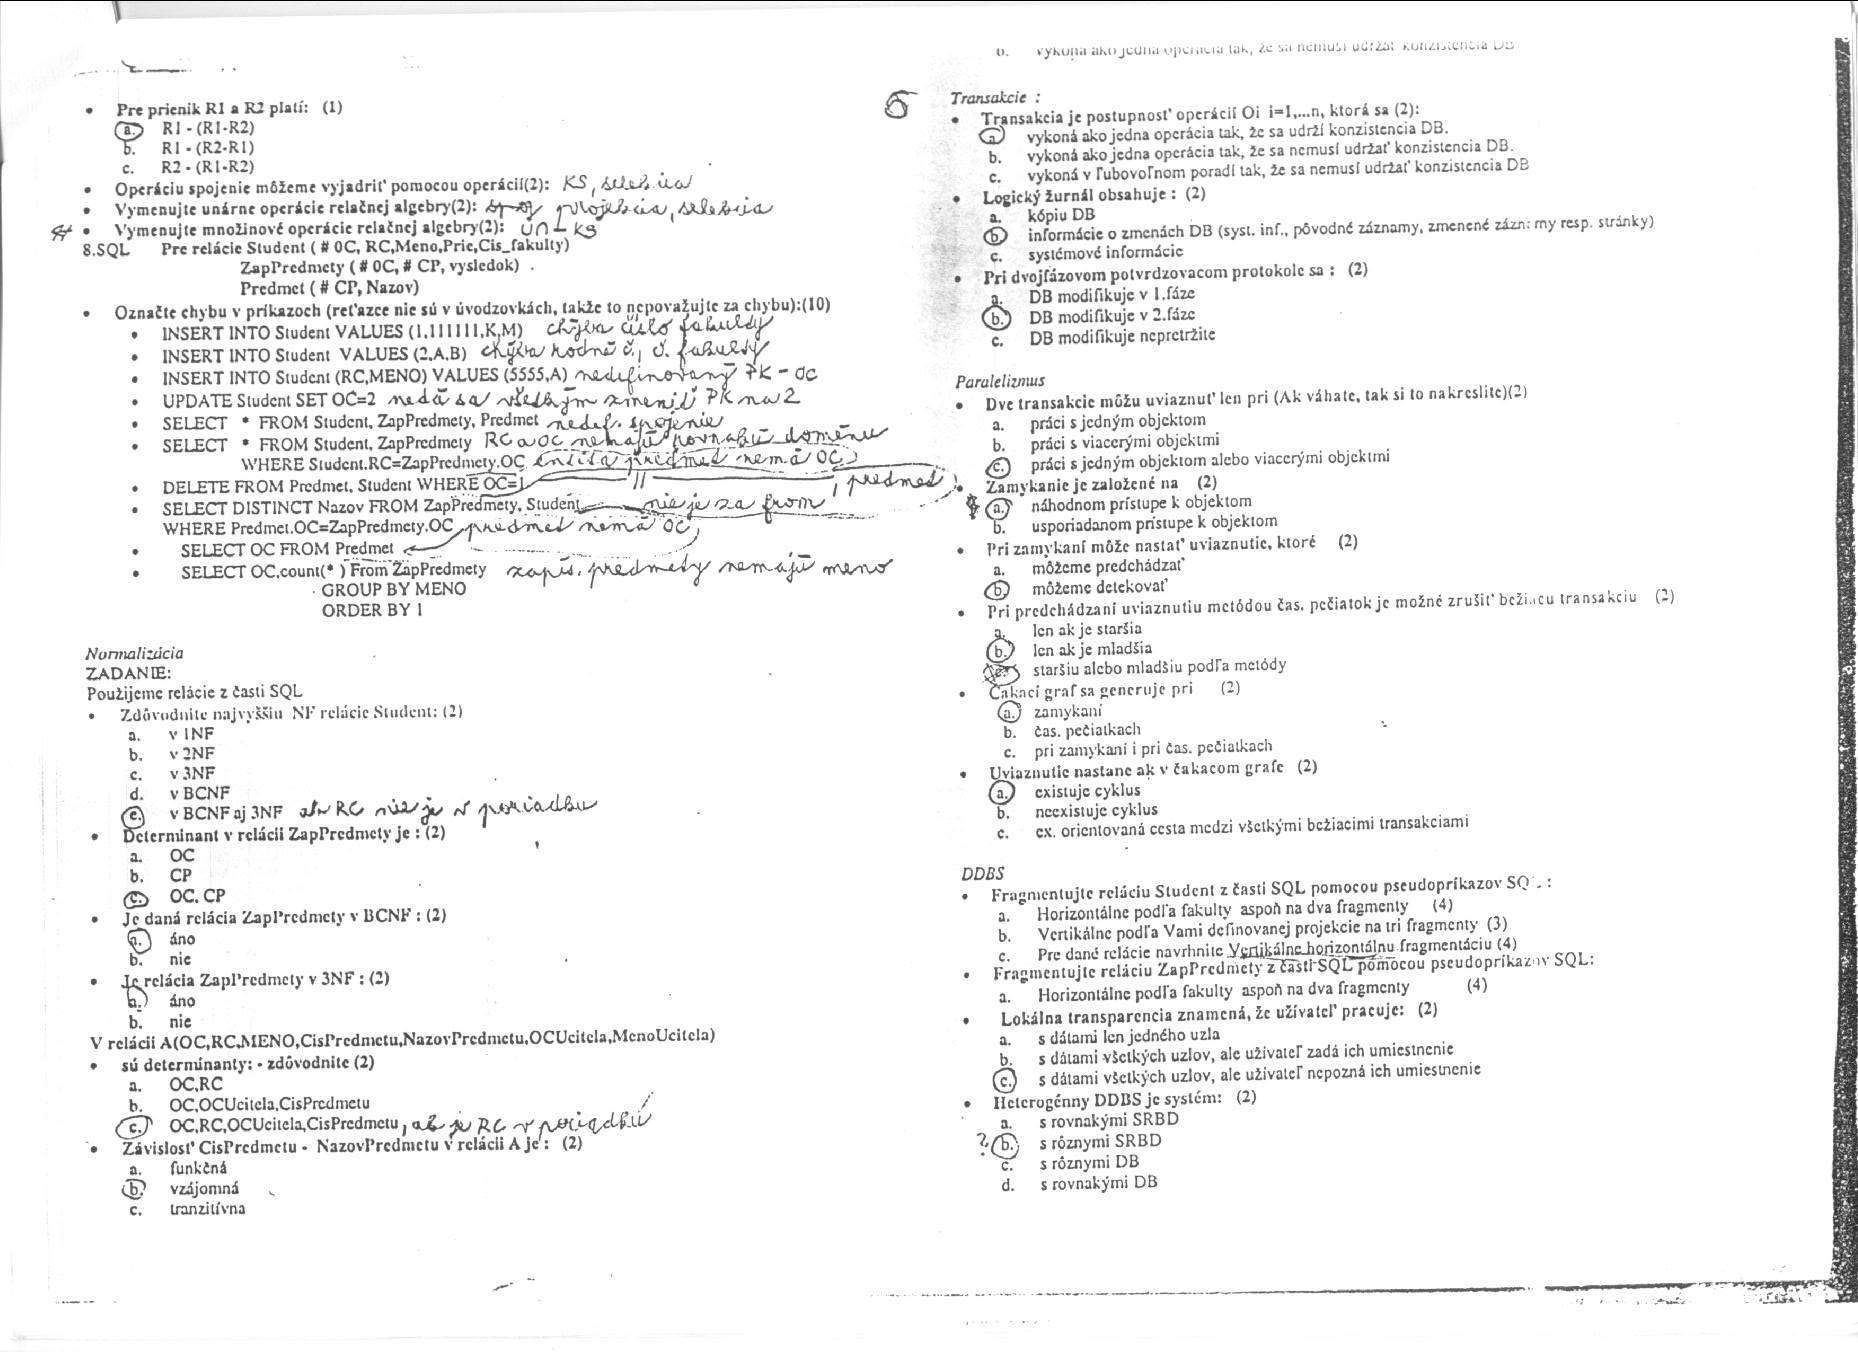 • Pre prienik R1 a R2 platí: (1)
a. R1 - (R1-R2)
b. R1 - (R2-R1)
c. R2 - (R1-R2)
• Operáciu spojenie môžeme vyjadriť pomocou operácií(2): KS, selekcia
• Vymenujte unárne operácie relačnej algebry(2): projekcia, selekcia
• Vymenujte množinové operácie relačnej algebry(2): ∪ ∩ - KS
8.SQL Pre relácie Student ( # OC, RC,Meno,Prie,Cis_fakulty)
ZapPredmety ( # OC, # CP, vysledok) .
Predmet ( # CP, Nazov)
• Označte chybu v príkazoch (reťazce nie sú v úvodzovkách, takže to nepovažujte za chybu):(10)
• INSERT INTO Student VALUES (1,111111,K,M) chýba číslo fakulty
• INSERT INTO Student VALUES (2,A,B) chýba rodné č., č. fakulty
• INSERT INTO Student (RC,MENO) VALUES (5555,A) nedefinovaný PK - OC
• UPDATE Student SET OC=2 nedá sa všetkým zmeniť PK na 2
• SELECT * FROM Student, ZapPredmety, Predmet nedef. spojenie
• SELECT * FROM Student, ZapPredmety RC a OC nemajú rovnakú doménu
WHERE Student.RC=ZapPredmety.OC entita predmet nemá OC
• DELETE FROM Predmet, Student WHERE OC=1 , predmet
• SELECT DISTINCT Nazov FROM ZapPredmety, Student nie je za from
WHERE Predmet.OC=ZapPredmety.OC predmet nemá OC
• SELECT OC FROM Predmet
• SELECT OC,count(* ) From ZapPredmety zapis. predmety nemajú meno
GROUP BY MENO
ORDER BY 1
Normalizácia
ZADANIE:
Použijeme relácie z časti SQL
• Zdôvodnite najvyššiu NF relácie Student: (2)
a. v 1NF
b. v 2NF
c. v 3NF
d. v BCNF
e. v BCNF aj 3NF ak RC nie je v poriadku
• Determinant v relácii ZapPredmety je : (2)
a. OC
b. CP
c. OC, CP
• Je daná relácia ZapPredmety v BCNF : (2)
a. áno
b. nie
• Je relácia ZapPredmety v 3NF : (2)
a. áno
b. nie
V relácii A(OC,RC,MENO,CisPredmetu,NazovPredmetu,OCUcitela,MenoUcitela)
• sú determinanty: - zdôvodnite (2)
a. OC,RC
b. OC,OCUcitela,CisPredmetu
c. OC,RC,OCUcitela,CisPredmetu, ak je RC v poriadku
• Závislosť CisPredmetu - NazovPredmetu v relácii A je : (2)
a. funkčná
b. vzájomná
c. tranzitívna
b. vykoná ako jedna operácia tak, že sa nemusí udržať konzistencia DB
Transakcie :
• Transakcia je postupnosť operácií Oi i=1,...n, ktorá sa (2):
a. vykoná ako jedna operácia tak, že sa udrží konzistencia DB.
b. vykoná ako jedna operácia tak, že sa nemusí udržať konzistencia DB.
c. vykoná v ľubovoľnom poradí tak, že sa nemusí udržať konzistencia DB
• Logický žurnál obsahuje : (2)
a. kópiu DB
b. informácie o zmenách DB (syst. inf., pôvodné záznamy, zmenené záznamy resp. stránky)
c. systémové informácie
• Pri dvojfázovom potvrdzovacom protokole sa : (2)
a. DB modifikuje v 1.fáze
b. DB modifikuje v 2.fáze
c. DB modifikuje nepretržite
Paralelizmus
• Dve transakcie môžu uviaznuť len pri (Ak váhate, tak si to nakreslite)(2)
a. práci s jedným objektom
b. práci s viacerými objektmi
c. práci s jedným objektom alebo viacerými objektmi
• Zamykanie je založené na (2)
a. náhodnom prístupe k objektom
b. usporiadanom prístupe k objektom
• Pri zamykaní môže nastať uviaznutie, ktoré (2)
a. môžeme predchádzať
b. môžeme detekovať
• Pri predchádzaní uviaznutiu metódou čas. pečiatok je možné zrušiť bežiacu transakciu (2)
a. len ak je staršia
b. len ak je mladšia
staršiu alebo mladšiu podľa metódy
• Čakací graf sa generuje pri (2)
a. zamykaní
b. čas. pečiatkach
c. pri zamykaní i pri čas. pečiatkach
• Uviaznutie nastane ak v čakacom grafe (2)
a. existuje cyklus
b. neexistuje cyklus
c. ex. orientovaná cesta medzi všetkými bežiacimi transakciami
DDBS
• Fragmentujte reláciu Student z časti SQL pomocou pseudopríkazov SQL :
a. Horizontálne podľa fakulty aspoň na dva fragmenty (4)
b. Vertikálne podľa Vami definovanej projekcie na tri fragmenty (3)
c. Pre dané relácie navrhnite Vertikálne horizontálnu fragmentáciu (4)
• Fragmentujte reláciu ZapPredmety z časti SQL pomocou pseudopríkazov SQL:
a. Horizontálne podľa fakulty aspoň na dva fragmenty (4)
• Lokálna transparencia znamená, že užívateľ pracuje: (2)
a. s dátami len jedného uzla
b. s dátami všetkých uzlov, ale užívateľ zadá ich umiestnenie
c. s dátami všetkých uzlov, ale užívateľ nepozná ich umiestnenie
• Heterogénny DDBS je systém: (2)
a. s rovnakými SRBD
? b. s rôznymi SRBD
c. s rôznymi DB
d. s rovnakými DB